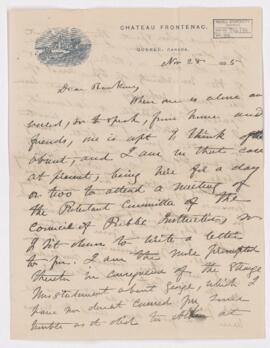 CHATEAU FRONTENAC,
QUEBEC, CANADA.
Nov 28 1895
Dear
When one is alone and
so to speak, from home and
friends, one is apt to think of the
absent, and I am in that case
at present, being here for a day
or two to attend a meeting of
the Protestant Committee of the
Council of Public Instruction, so
I sit down to write a letter
to you. I am the more prompted
thereto in consequence of the strange
misstatement about George, which I
have no doubt caused you some
trouble as it did to at